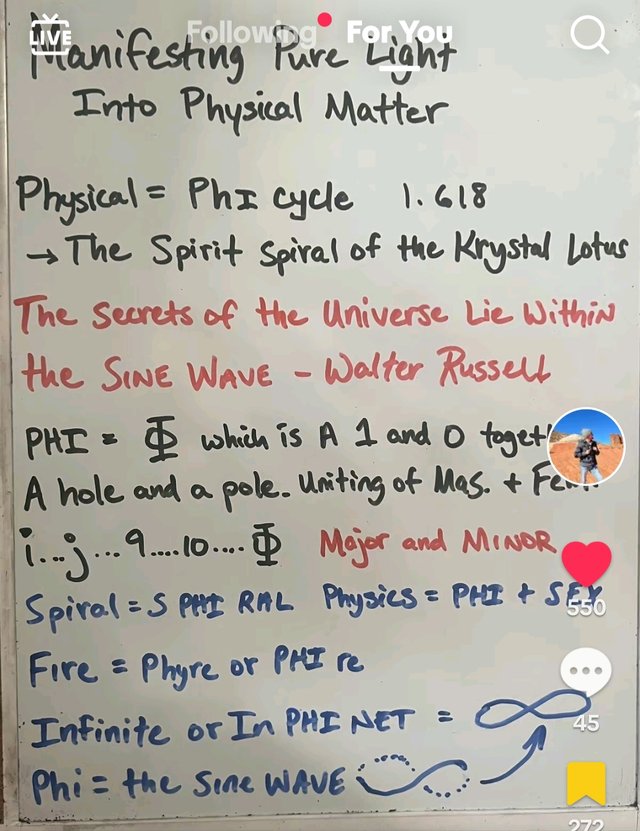 LIVE
Following For You
Manifesting Pure Light
Into Physical Matter
Physical = PhI cycle 1.618
→ The Spirit Spiral of the Krystal Lotus
The Secrets of the Universe Lie Within
the SINE WAVE - Walter Russell
PHI = Φ which is A 1 and 0
A hole and a pole. Uniting of Mas. +
i...j...9.....10....Φ Major and MINOR
Spiral = S PHI RAL Physics = PHI + SEX
550
Fire = Phyre or PHI re
Infinite or In PHI NET = ∞
45
Phi = the Sine WAVE
272